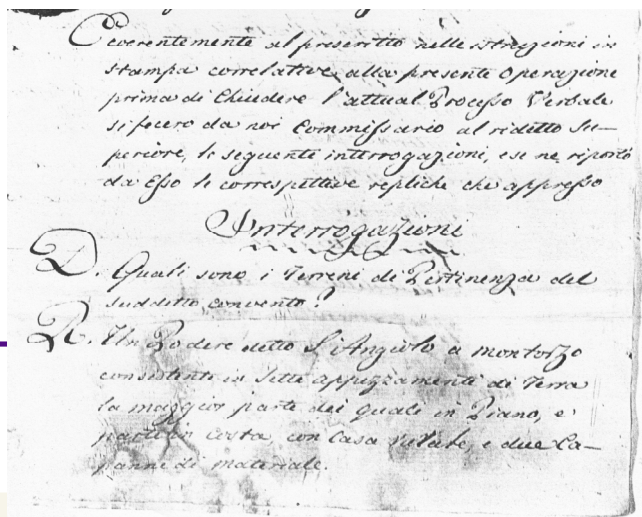 Coerentemente al prescritto nelle istruzioni in
stampa correlative alla presente Operazione
prima di Chiudere l'attual Processo Verbale
si fecero da noi Commissario al ridetto Su-
periore, le seguenti interrogazioni, e se ne riportò
da Esso le correspettive repliche che appresso
Interrogazioni
D. Quali sono i Terreni di Pertinenza del
suddetto convento?
R. Un Podere detto S. Angiolo a montorzo
consistente in Sette appezzamenti di Terra
la maggior parte dei quali in Piano, e
parte in Costa, con Casa e due Ca-
panne di materiale.